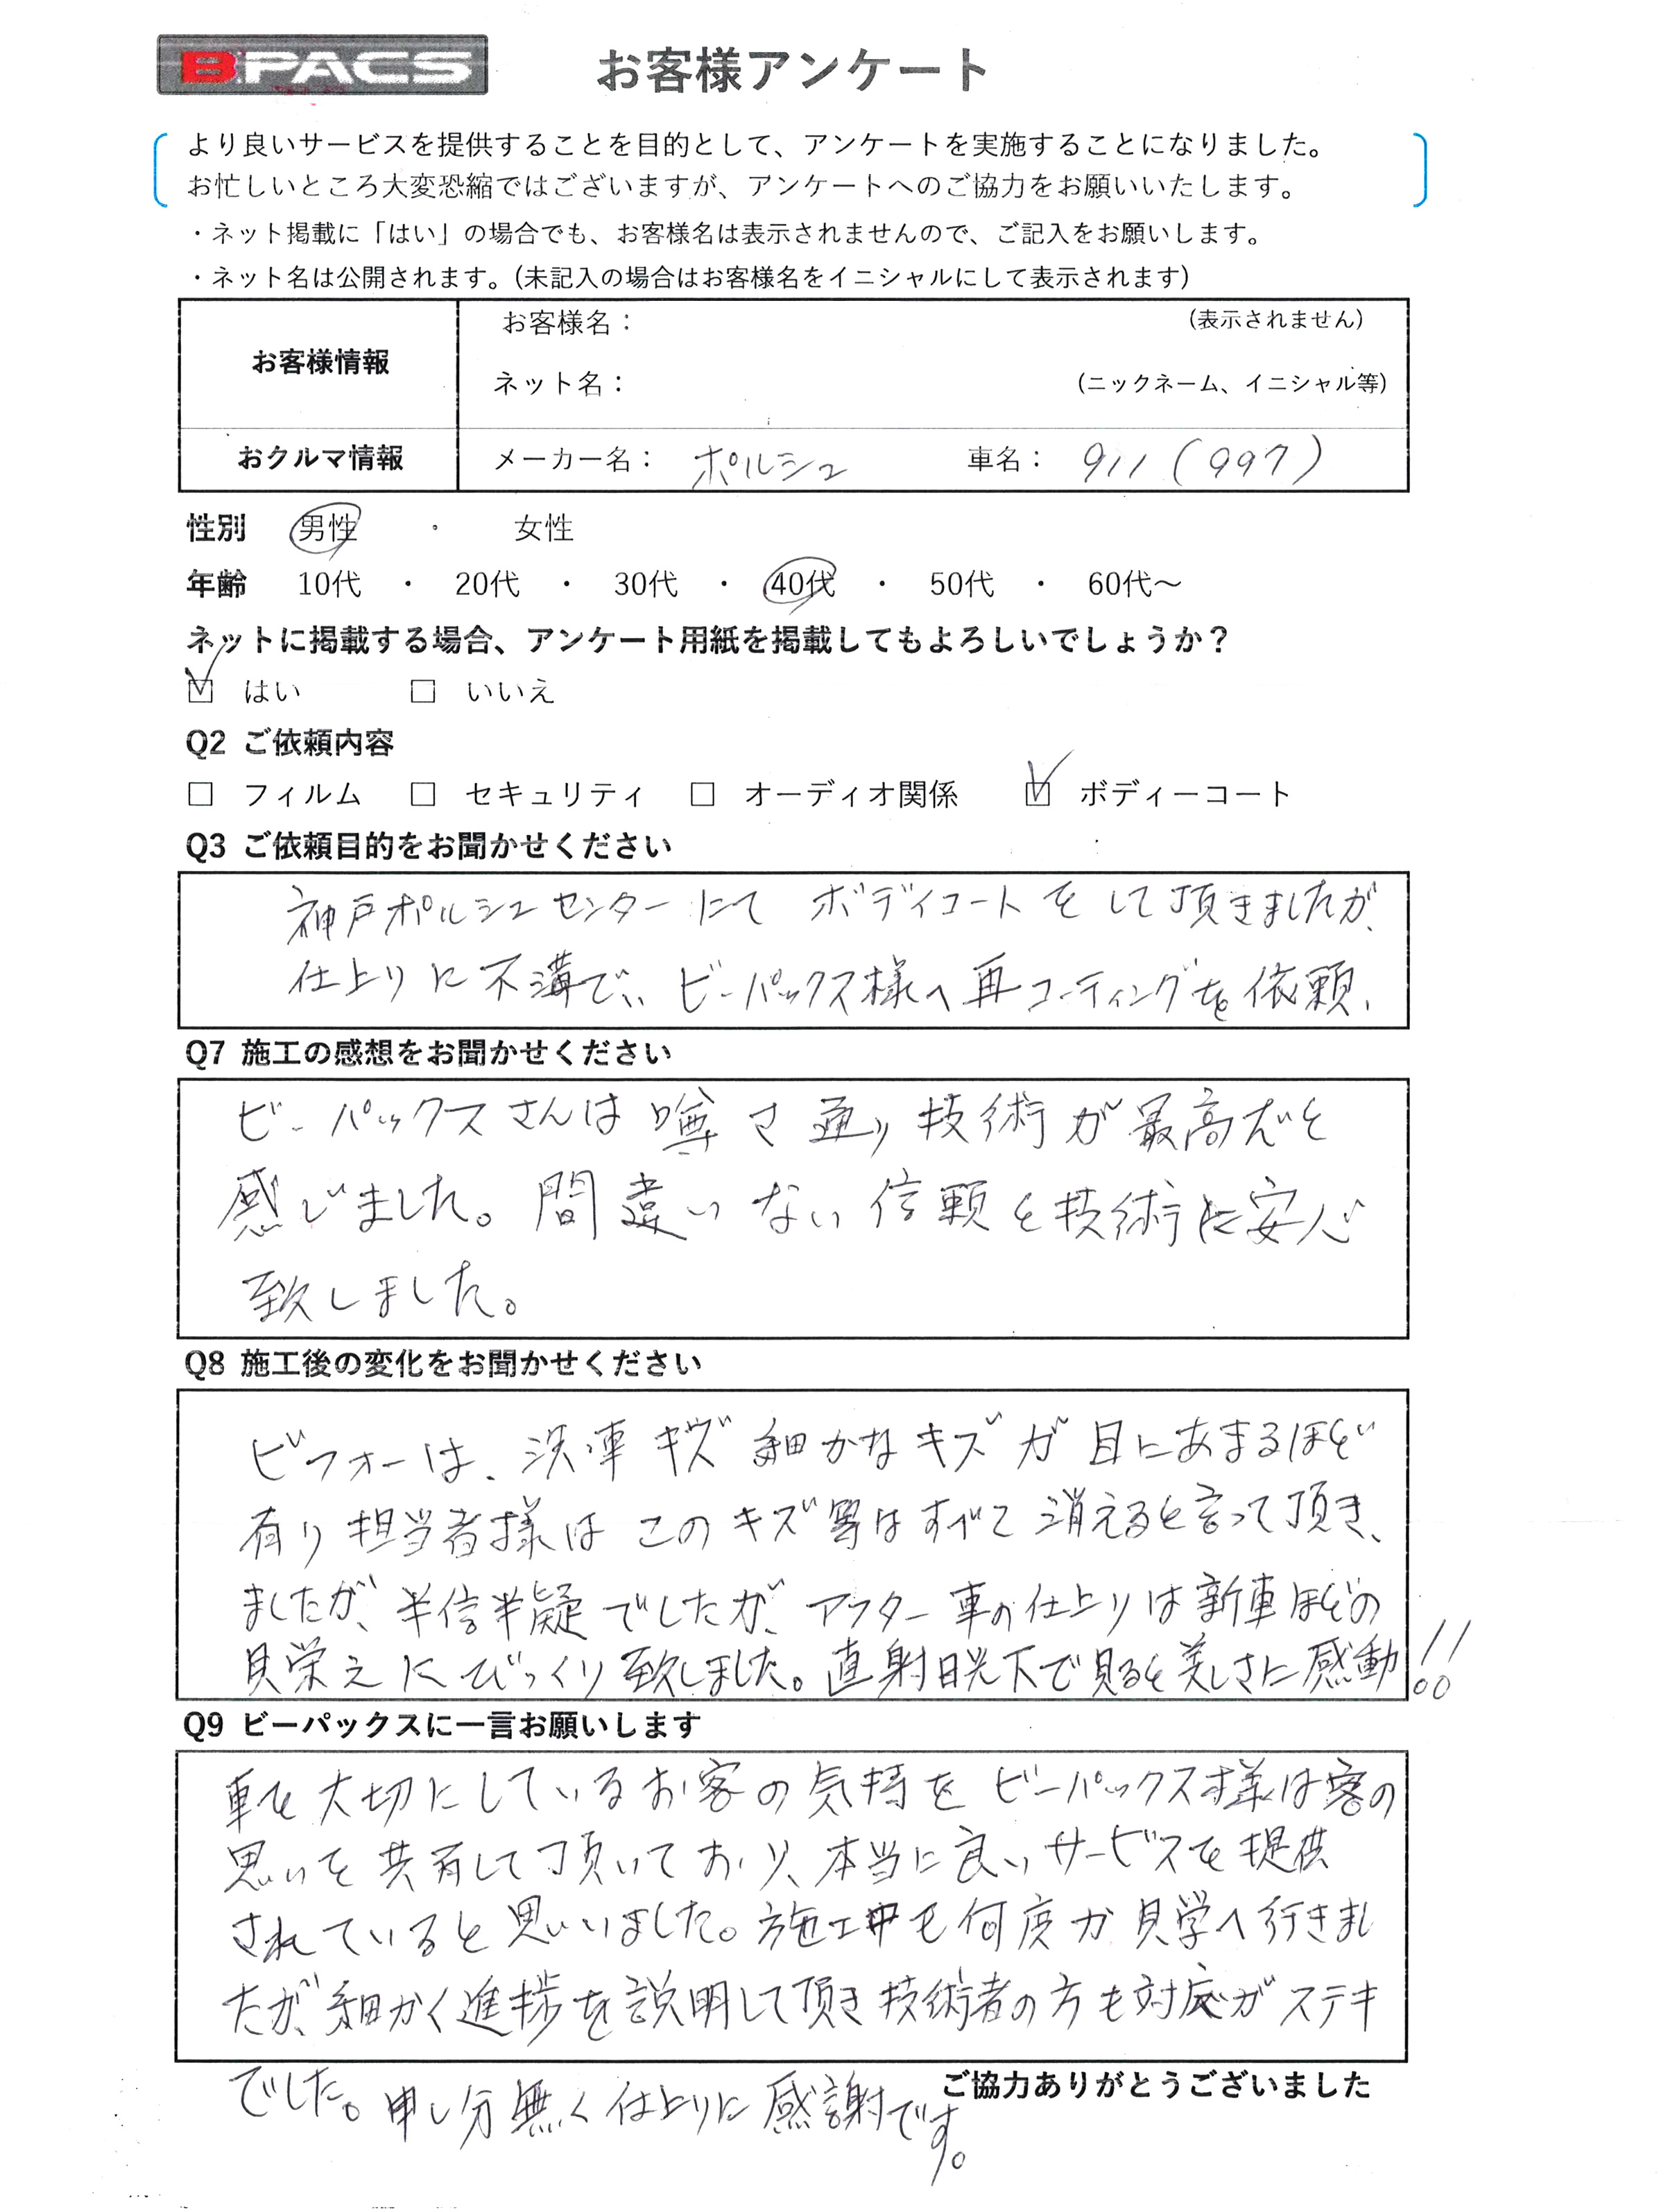 BPACS お客様アンケート
より良いサービスを提供することを目的として、アンケートを実施することになりました。
お忙しいところ大変恐縮ではございますが、アンケートへのご協力をお願いいたします。
・ネット掲載に「はい」の場合でも、お客様名は表示されませんので、ご記入をお願いします。
・ネット名は公開されます。(未記入の場合はお客様名をイニシャルにして表示されます)
お客様情報
お客様名： (表示されません)
ネット名： (ニックネーム、イニシャル等)
おクルマ情報 メーカー名： ポルシェ 車名： 911 (997)
性別 男性 ・ 女性
年齢 10代 ・ 20代 ・ 30代 ・ 40代 ・ 50代 ・ 60代～
ネットに掲載する場合、アンケート用紙を掲載してもよろしいでしょうか？
☑ はい □ いいえ
Q2 ご依頼内容
□ フィルム □ セキュリティ □ オーディオ関係 ☑ ボディーコート
Q3 ご依頼目的をお聞かせください
神戸ポルシェセンターにて ボディコートをして頂きましたが、
仕上りに不満で、ビーパックス様へ再コーティングを依頼、
Q7 施工の感想をお聞かせください
ビーパックスさんは噂さ通り技術が最高だと
感じました。間違いない信頼と技術に安心
致しました。
Q8 施工後の変化をお聞かせください
ビフォーは、洗車キズ 細かなキズが目にあまるほど
有り担当者様はこのキズ等はすべて消えると言って頂き、
ましたが、半信半疑でしたが、アフター車の仕上りは新車ほどの
見栄えにびっくり致しました。直射日光下で見ると美しさに感動!!
Q9 ビーパックスに一言お願いします
車を大切にしているお客の気持を ビーパックス様は客の
思いを共有して頂いており、本当に良いサービスを提供
されていると思いいました。施工中も何度か見学へ行きまし
たが、細かく進捗を説明して頂き技術者の方も対応がステキ
でした。申し分無く仕上りに感謝です。
ご協力ありがとうございました